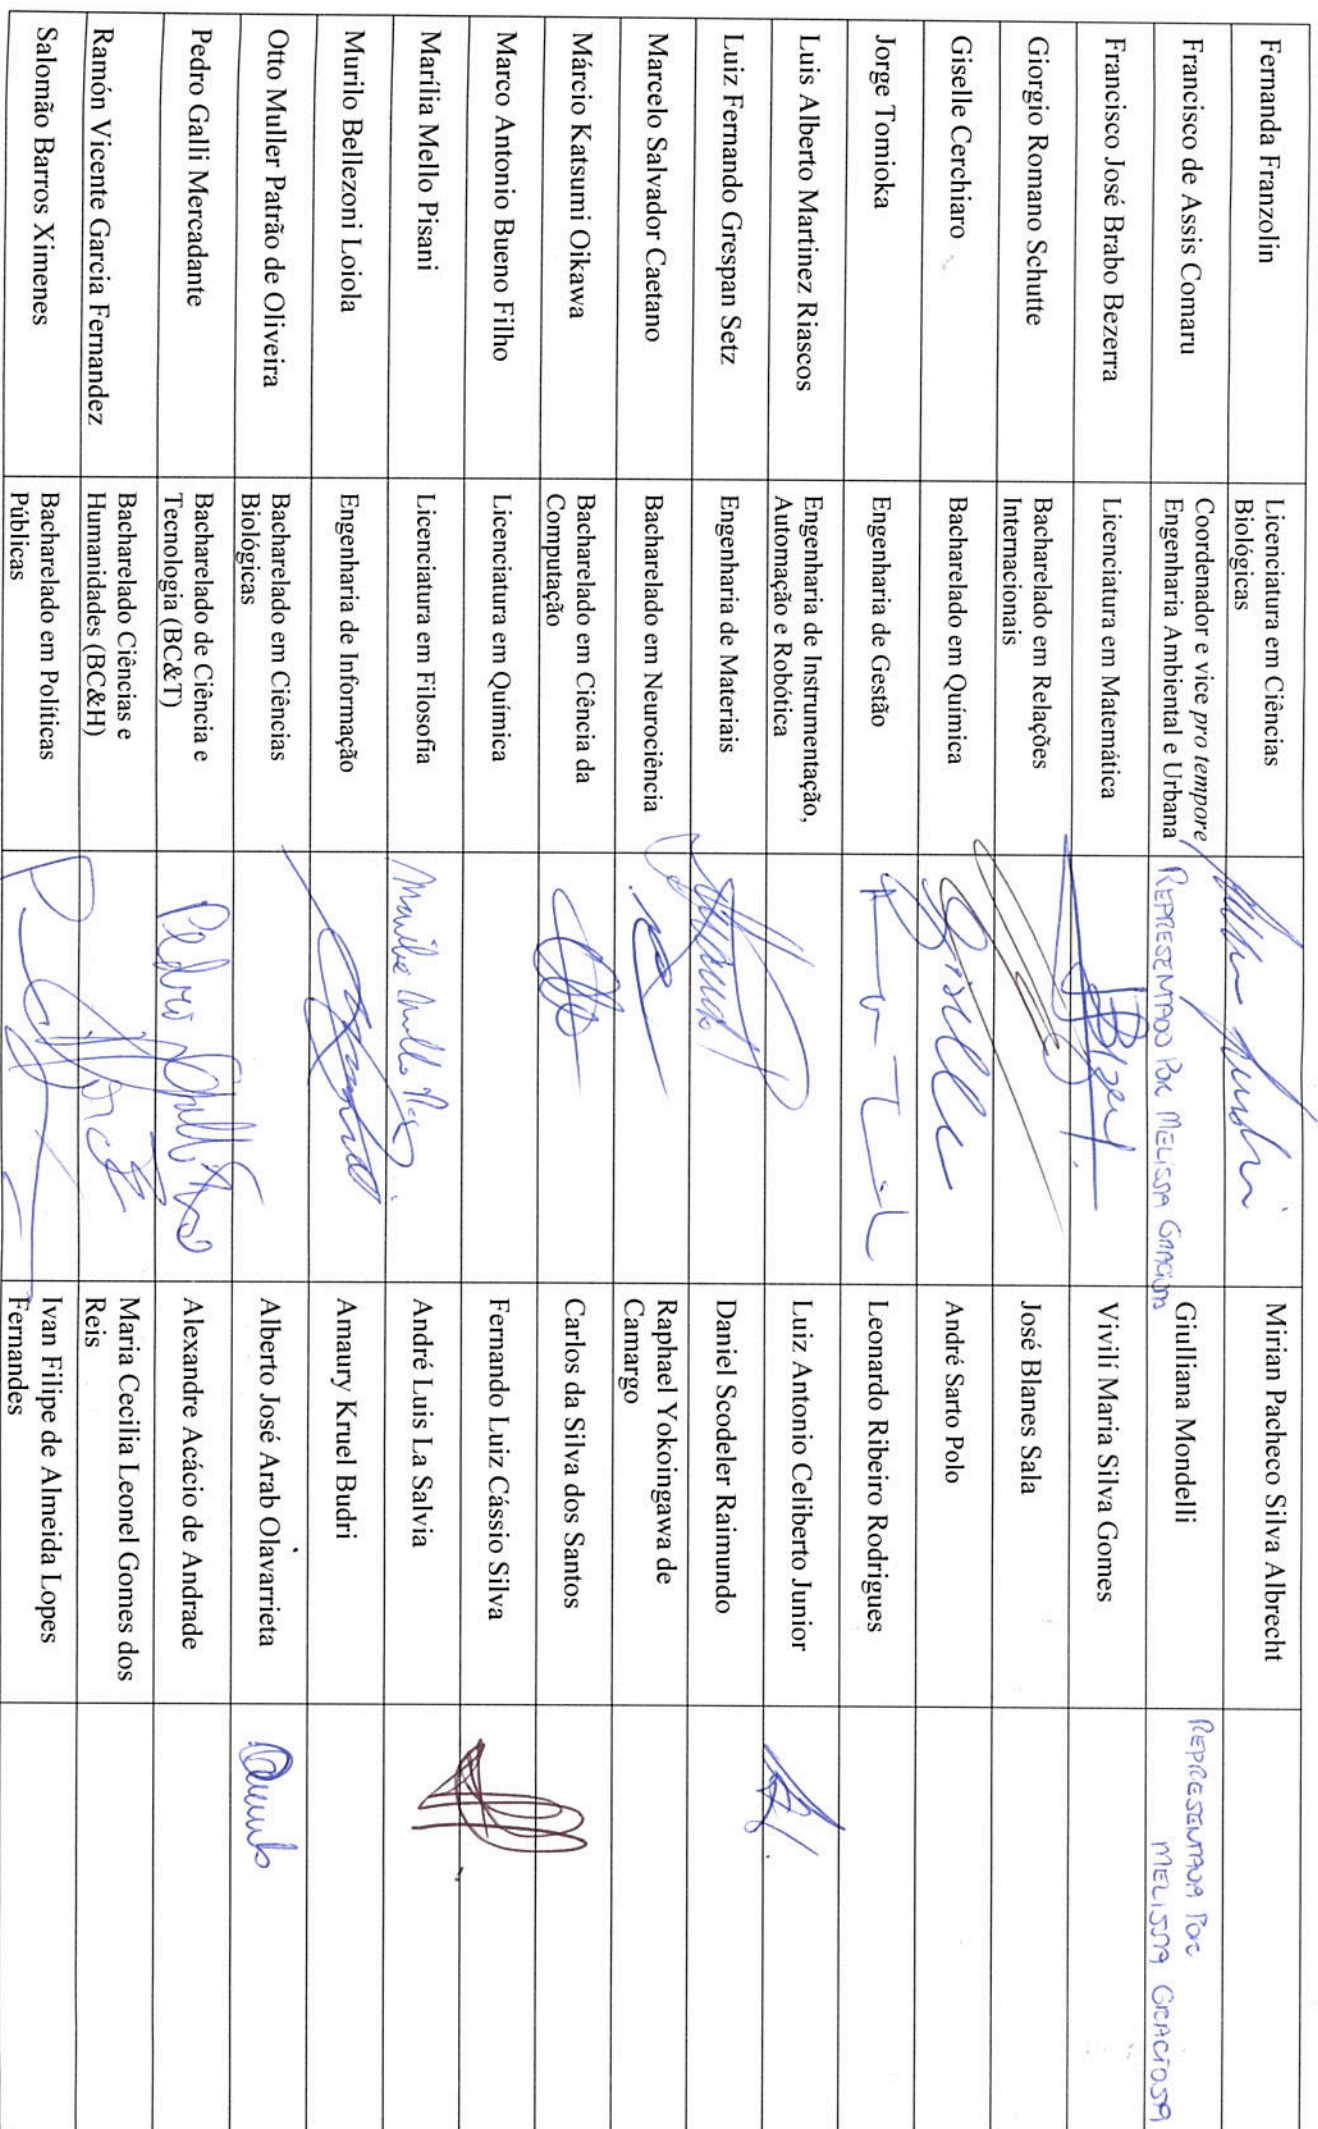 Fernanda Franzolin
Licenciatura em Ciências
Biológicas
Mirian Pacheco Silva Albrecht
Francisco de Assis Comaru
Coordenador e vice pro tempore
Engenharia Ambiental e Urbana
REPRESENTADO POR MELISSA GRACIOSA
Giulliana Mondelli
REPRESENTADA POR
MELISSA GRACIOSA
Francisco José Brabo Bezerra
Licenciatura em Matemática
Vivilí Maria Silva Gomes
Giorgio Romano Schutte
Bacharelado em Relações
Internacionais
José Blanes Sala
Giselle Cerchiaro
Bacharelado em Química
Giselle
André Sarto Polo
Jorge Tomioka
Engenharia de Gestão
Leonardo Ribeiro Rodrigues
Luis Alberto Martinez Riascos
Engenharia de Instrumentação,
Automação e Robótica
Luiz Antonio Celiberto Junior
Luiz Fernando Grespan Setz
Engenharia de Materiais
Daniel Scodeler Raimundo
Marcelo Salvador Caetano
Bacharelado em Neurociência
Raphael Yokoingawa de
Camargo
Márcio Katsumi Oikawa
Bacharelado em Ciência da
Computação
Carlos da Silva dos Santos
Marco Antonio Bueno Filho
Licenciatura em Química
Fernando Luiz Cássio Silva
Marília Mello Pisani
Licenciatura em Filosofia
André Luis La Salvia
Murilo Bellezoni Loiola
Engenharia de Informação
Amaury Kruel Budri
Otto Muller Patrão de Oliveira
Bacharelado em Ciências
Biológicas
Alberto José Arab Olavarrieta
Pedro Galli Mercadante
Bacharelado de Ciência e
Tecnologia (BC&T)
Pedro
Alexandre Acácio de Andrade
Ramón Vicente Garcia Fernandez
Bacharelado Ciências e
Humanidades (BC&H)
Maria Cecilia Leonel Gomes dos
Reis
Salomão Barros Ximenes
Bacharelado em Políticas
Públicas
Ivan Filipe de Almeida Lopes
Fernandes